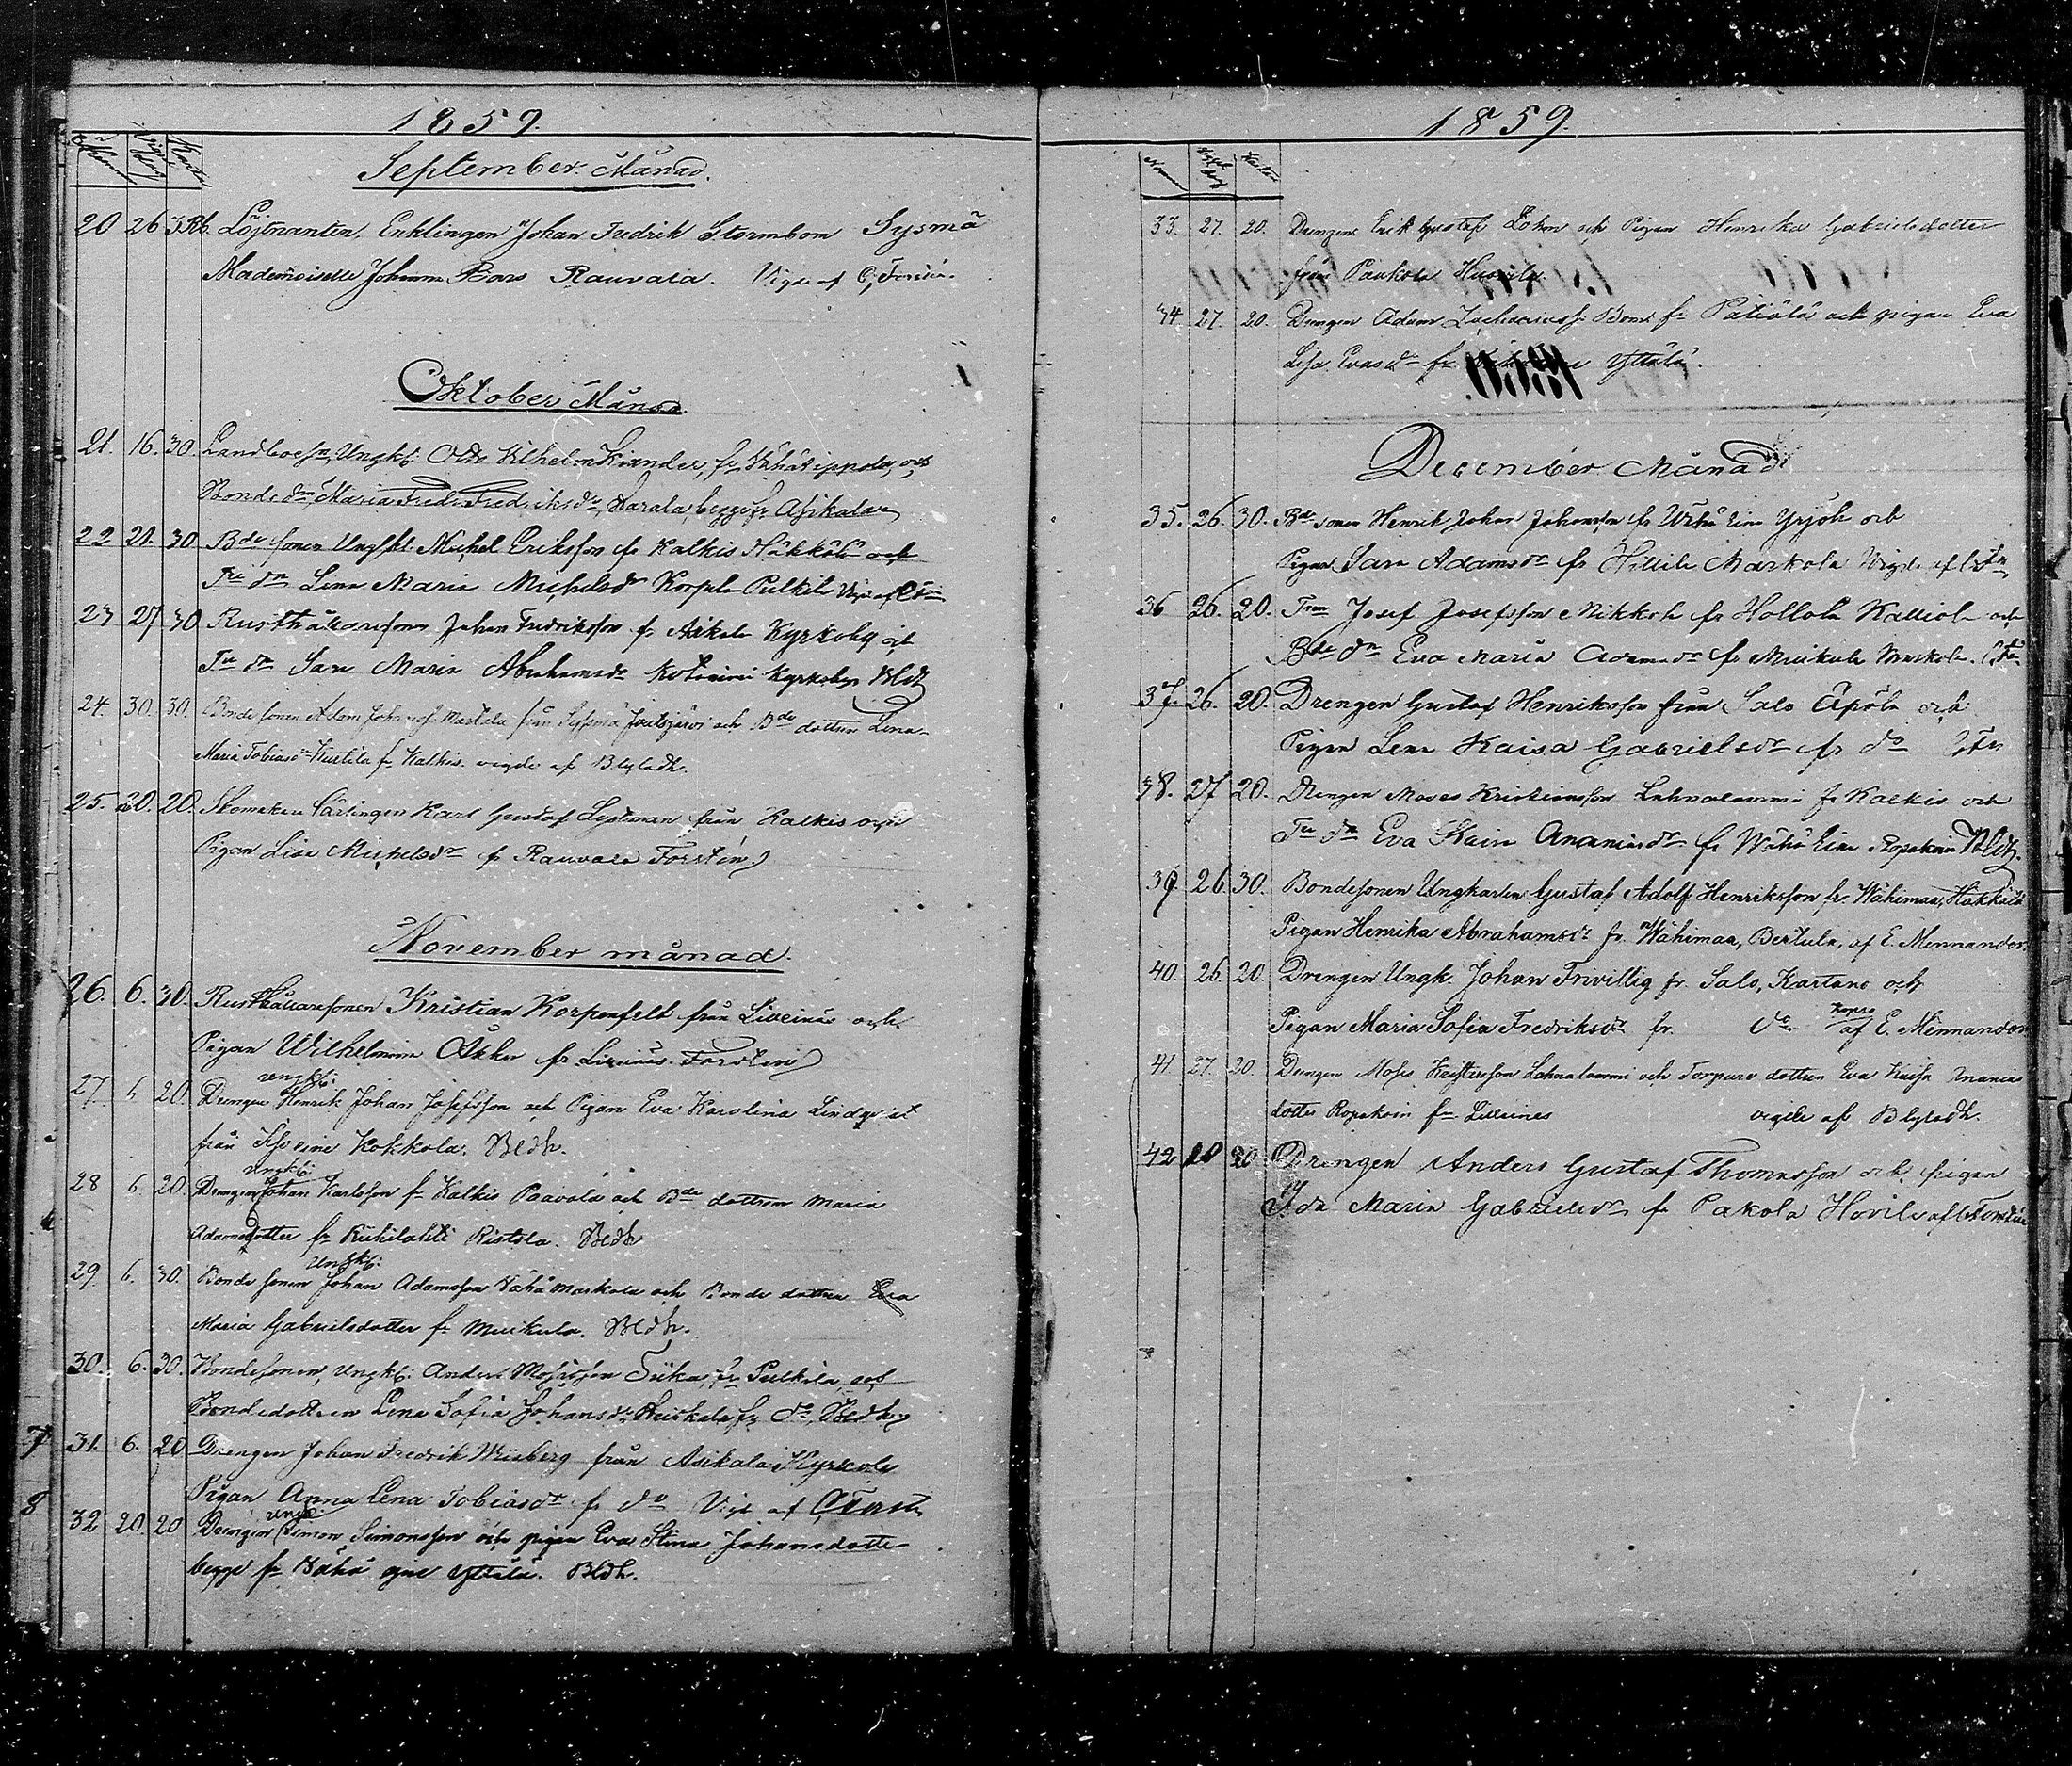 1859.
September Månad.
20 26 3Rb. Löjtnanten, Enklingen Johan Fredrik Stormbom Sysmä
Mademoiselle Johanna Rauvala. Vigde af C, Forstén.
Oktober Månad.
21. 16. 30. Ungk: Otto Vilhelm Kiander, fr. och
Bonde dn Maria Fredriksdr, Harala, begge fr Asikala
22 21. 30 Bde sonen Ungkl. Michel Eriksson fr Kalkis Häkkölä och
Tre dn Lena Maria Michelsdr Korpela Pulkila
23 27 30 Rusthållaresonen Johan Fredriksson fr Asikala Kyrkoby och
Tre dr Sara Maria Abrahamsdr Kotoniemi Kyrkoby Bldh
24. 30. 30. Bonde sonen Adam Johansson Mattila från Sysmä Joutsjärvi och Bde dottren Lena
Maria Tobiasdr Kurtila fr Kalkis. vigde af Blyladh.
25. 30. 20. Skomakare Lärlingen Karl Gustaf Lystman från Kalkis och
Pigan Lisa Michelsdr fr Rauvala Forstén
November månad.
26. 6. 30. Rusthållaresonen Kristian Korpenfelt från och
Pigan Wilhelmina Åkker fr Forstén
ungk:
27 6 20. Drengen Henrik Johan Josefsson och Pigan Eva Karolina Lindqvist
från Kokkola. Bldh.
Ungk:
28 6. 20. Drengen Johan Karlsson fr Kalkis Paavola och Bde dottren Maria
Adamsdotter fr Ristola. Bldh
Ungk:
29. 6. 30. Bonde sonen Johan Adamsson Vähä Markola och Bonde dottren Eva
Maria Gabrielsdotter fr Muikula. Bldh.
30. 6. 30. Bondesonen, Ungk: Anders Mosisson fr Pulkila, och
Bondedottren Lena Sofia Johansdr fr do, Bldh
7 31. 6. 20 Drengen Johan Fredrik från Asikala Kyrkoby
Pigan Anna Lena Tobiasdr fr do Vigd af
ungk
8 32 20. 20 Drengen Simon Simonsson och pigan Eva Stina Johansdotter
begge fr Vähä Yttälä. Bldh.
1859.
33. 27. 20. Drengen Erik Gustaf och Pigan Henrika Gabrielsdotter
från
34 27. 20. Drengen Adam Zachariass. fr Pätiälä och pigan Eva
Lisa Evasdr fr Yttälä.
December Månad
35. 26. 30. Bde sonen Henrik Johan Johansson fr Yrjölä och
Pigan Sara Adamsdr fr Markola Vigde af
36 26. 20. Josef Josefsson Mikkola fr Hollola Kalliola och
Bde dn Eva Maria Adamsdr fr Muikula Markola.
37. 26. 20. Drengen Gustaf Henriksson från Salo Äpölä och
Pigan Lena Kaisa Gabrielsdr fr do
38. 27 20. Drengen Moses Kristiansson Lahnalammi fr Kalkis och
Tre dn Eva Kaisa Ananiasdr fr Ropakoin Bldh.
39 26 30. Bondesonen Ungkarlen Gustaf Adolf Henriksson fr. Wähimaa, Häkkilä
Pigan Henrika Abrahamsdr fr. Wähimaa, Bertula, af E. Mennander.
40. 26 20. Drengen Ungk. Johan Frivillig fr Salo, Kartano och
Pigan Maria Sofia Fredriksdr fr. do af E. Mennander
41. 27. 20. Drengen Moses Lahnalammi och Torpare dottren Eva Kaisa Ananias
dotter Ropakoin fr vigde af Blyladh.
42 20 20 Drengen Anders Gustaf Thomasson och pigan
Ida Maria Gabrielsdr fr Pakola af Forstén